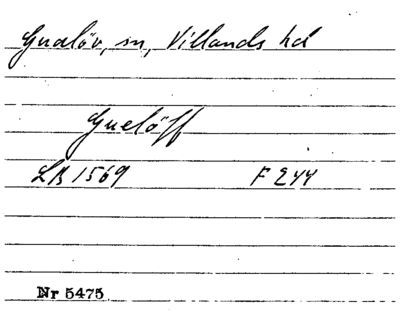 Gualöv, sn, Villands hd
Guelöff
LB 1569 F 244
Nr 5475